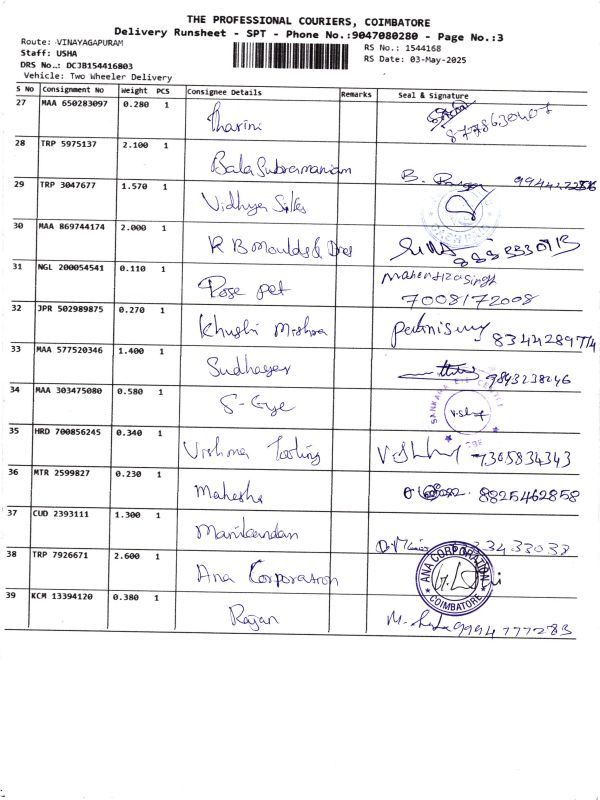 THE PROFESSIONAL COURIERS, COIMBATORE
Delivery Runsheet - SPT - Phone No.:9047080280 - Page No.:3
Route: VINAYAGAPURAM RS No.: 1544168
Staff: USHA RS Date: 03-May-2025
DRS No..: DCJB154416803
Vehicle: Two Wheeler Delivery
S No Consignment No Weight PCS Consignee Details Remarks Seal & Signature
27 MAA 650283097 0.280 1 Tharini 8778630407
28 TRP 5975137 2.100 1 Bala Subramaniam B.
29 TRP 3047677 1.570 1 Vidhya Silks
30 MAA 869744174 2.000 1 R B Moulds & Dies
31 NGL 200054541 0.110 1 Rose pet Mahendra Singh 7008172008
32 JPR 502989875 0.270 1 Khushi Mishra 8344289774
33 MAA 577520346 1.400 1 Sudhager 9843238246
34 MAA 303475080 0.580 1 S-Eye SANKARA EYE
35 HRD 700856245 0.340 1 Testing 7305834343
36 MTR 2599827 0.230 1 8825462858
37 CUD 2393111 1.300 1 Manikandan
38 TRP 7926671 2.600 1 Ana Corporation ANA CORPORATION COIMBATORE
39 KCM 13394120 0.380 1 Rajan 9994777283